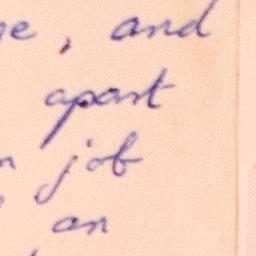 , and
apart
job
an